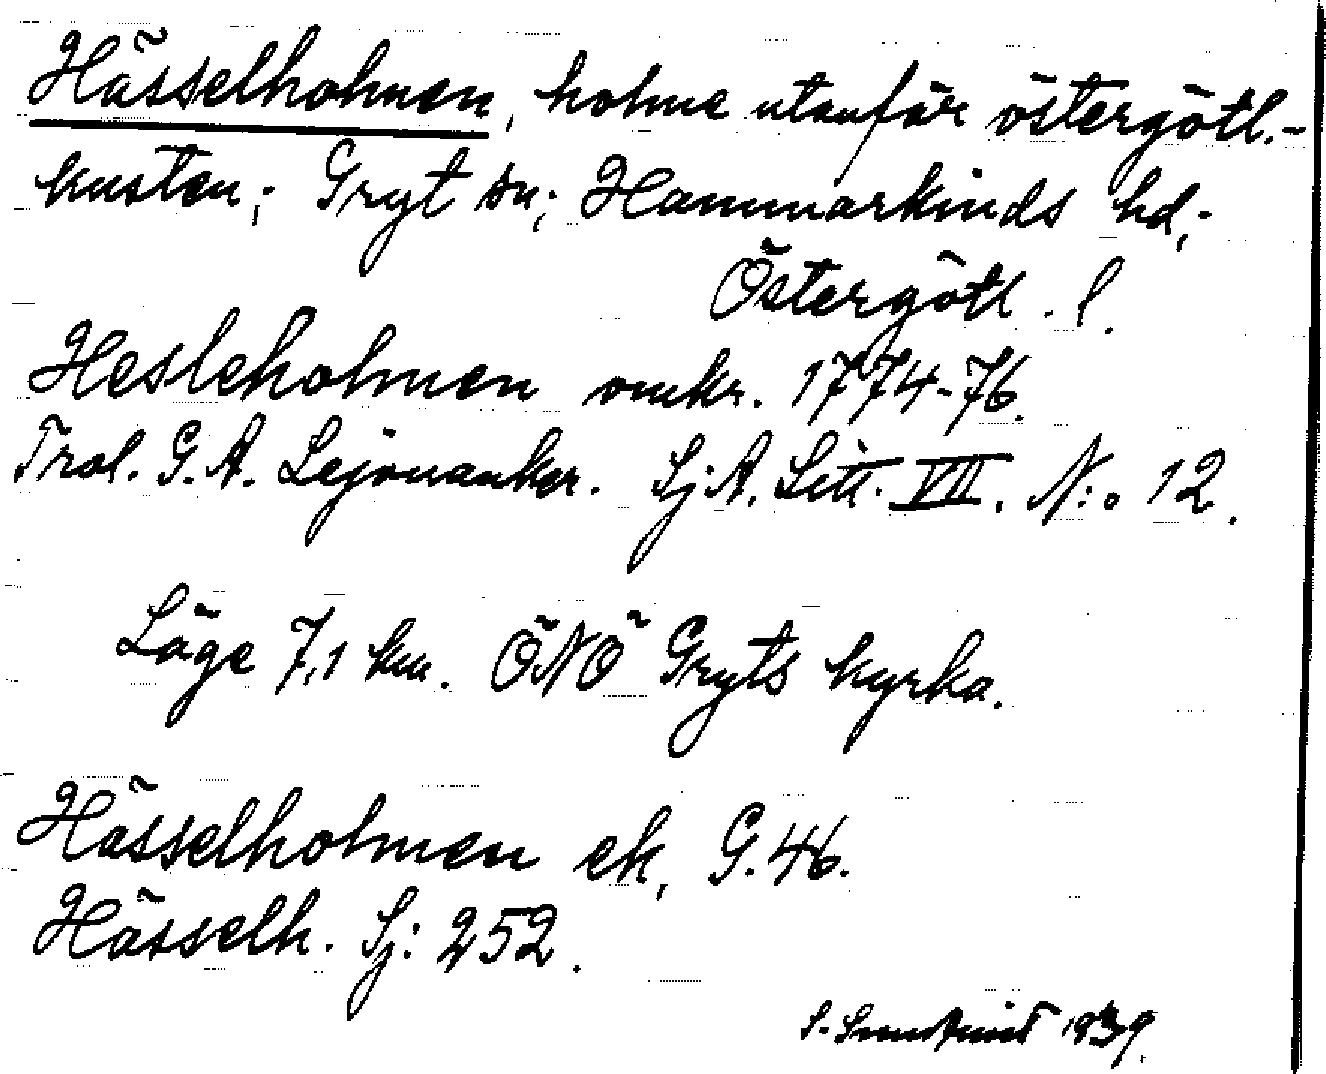 Hässelholmen, holme utanför östergötl.-
kusten; Gryt sn; Hammarkinds hd,;
Östergötl. l.
Hesleholmen omkr. 1774-76.
Trol. G. A. Lejonanker. Sj. A. Litt. VII. N:o 12.
Läge 7,1 km. ÖNÖ Gryts kyrka.
Hässelholmen ek, G. 46.
Hässelh. Sj: 252.
S. 1939.